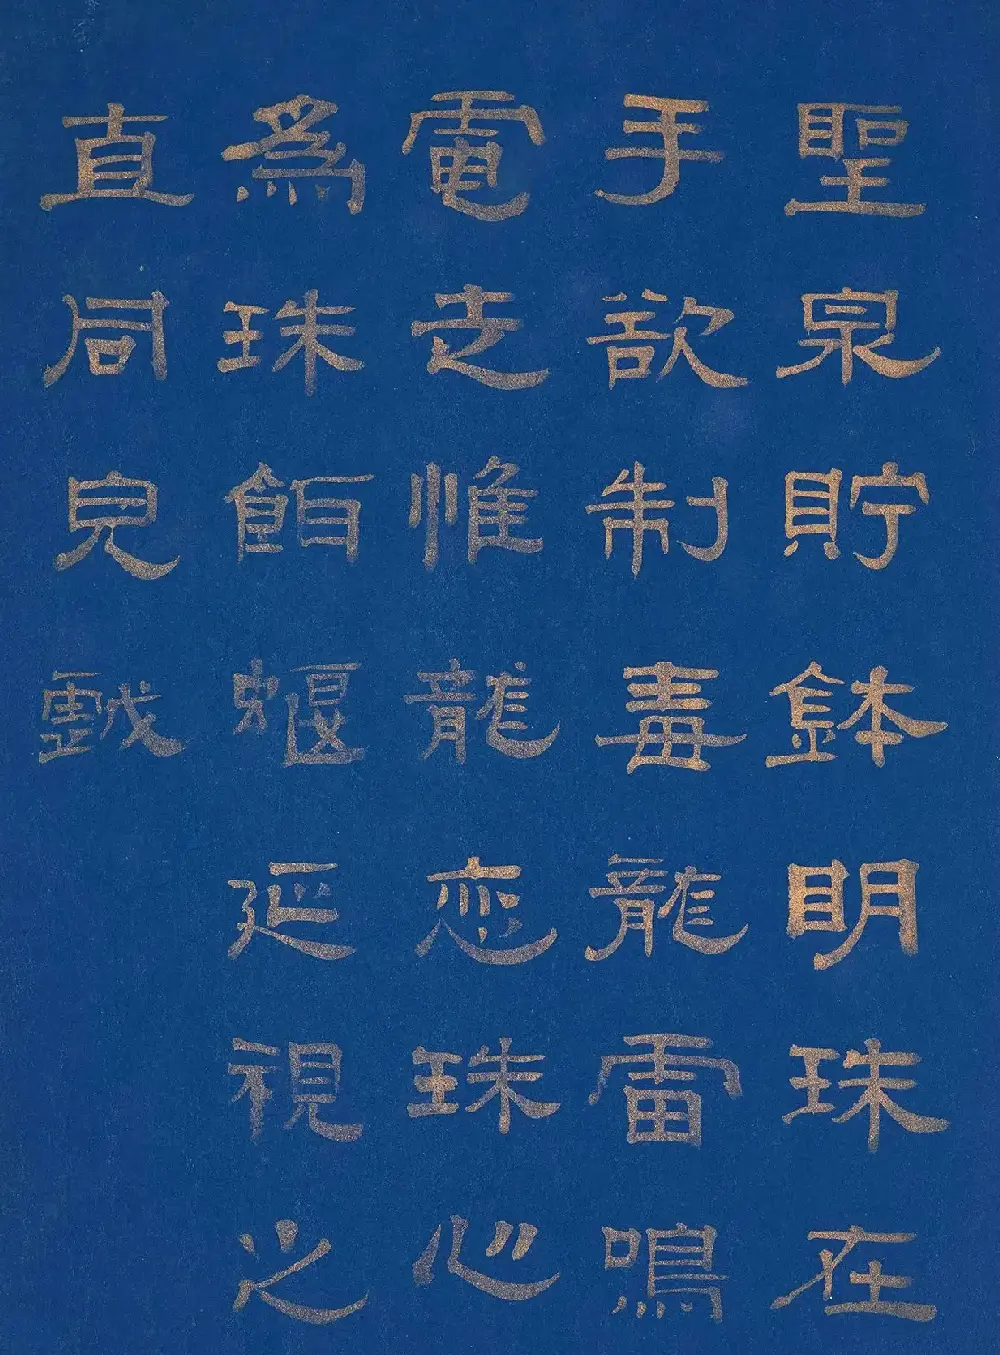 聖泉貯鉢明珠在
手欲制毒龍雷鳴
電走惟龍恋珠心
爲珠餌蝘延視之
直同兒戲